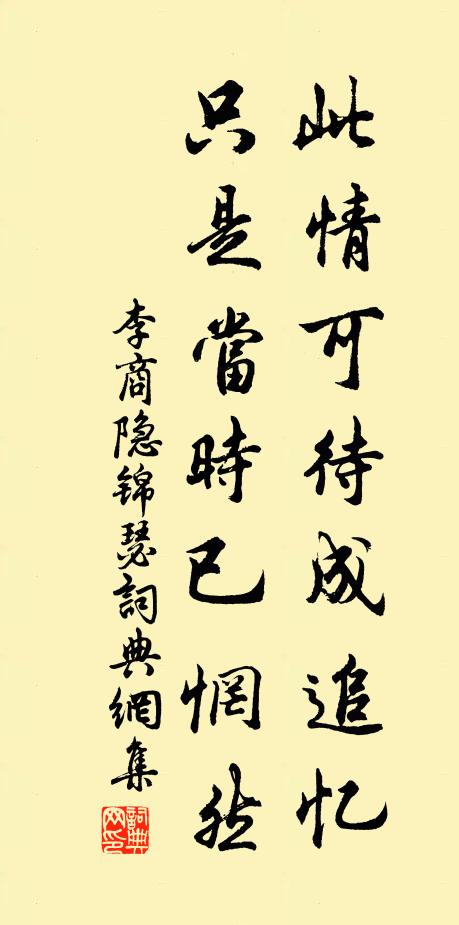 此情可待成追忆
只是當時已惘然
李商隐锦瑟詞典網集
詞典
网印